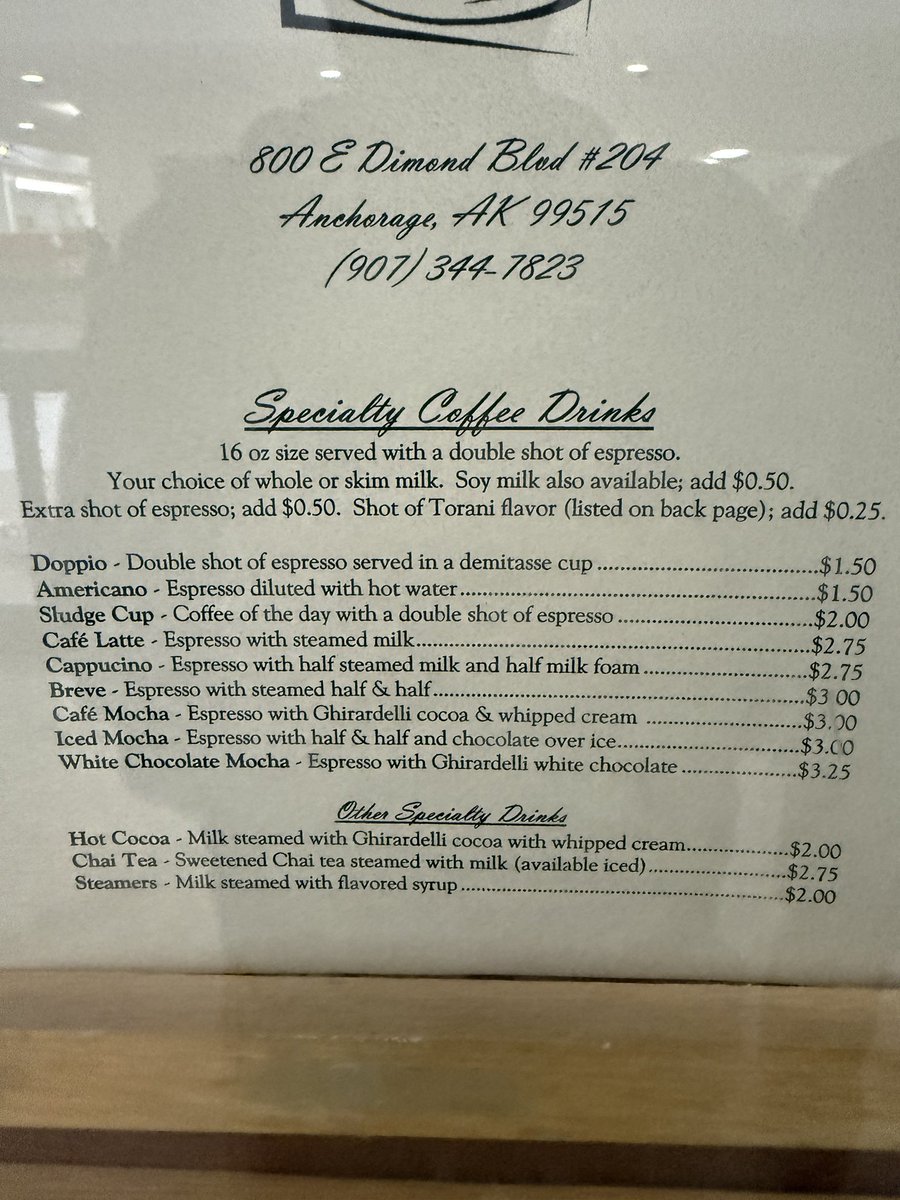 800 E Dimond Blvd #204
Anchorage, AK 99515
(907) 344-7823
Specialty Coffee Drinks
16 oz size served with a double shot of espresso.
Your choice of whole or skim milk. Soy milk also available; add $0.50.
Extra shot of espresso; add $0.50. Shot of Torani flavor (listed on back page); add $0.25.
Doppio - Double shot of espresso served in a demitasse cup ..........$1.50
Americano - Espresso diluted with hot water..........$1.50
Sludge Cup - Coffee of the day with a double shot of espresso ..........$2.00
Café Latte - Espresso with steamed milk..........$2.75
Cappucino - Espresso with half steamed milk and half milk foam ..........$2.75
Breve - Espresso with steamed half & half..........$3 00
Café Mocha - Espresso with Ghirardelli cocoa & whipped cream ..........$3.00
Iced Mocha - Espresso with half & half and chocolate over ice..........$3.00
White Chocolate Mocha - Espresso with Ghirardelli white chocolate ..........$3.25
Other Specialty Drinks
Hot Cocoa - Milk steamed with Ghirardelli cocoa with whipped cream..........$2.00
Chai Tea - Sweetened Chai tea steamed with milk (available iced)..........$2.75
Steamers - Milk steamed with flavored syrup ..........$2.00